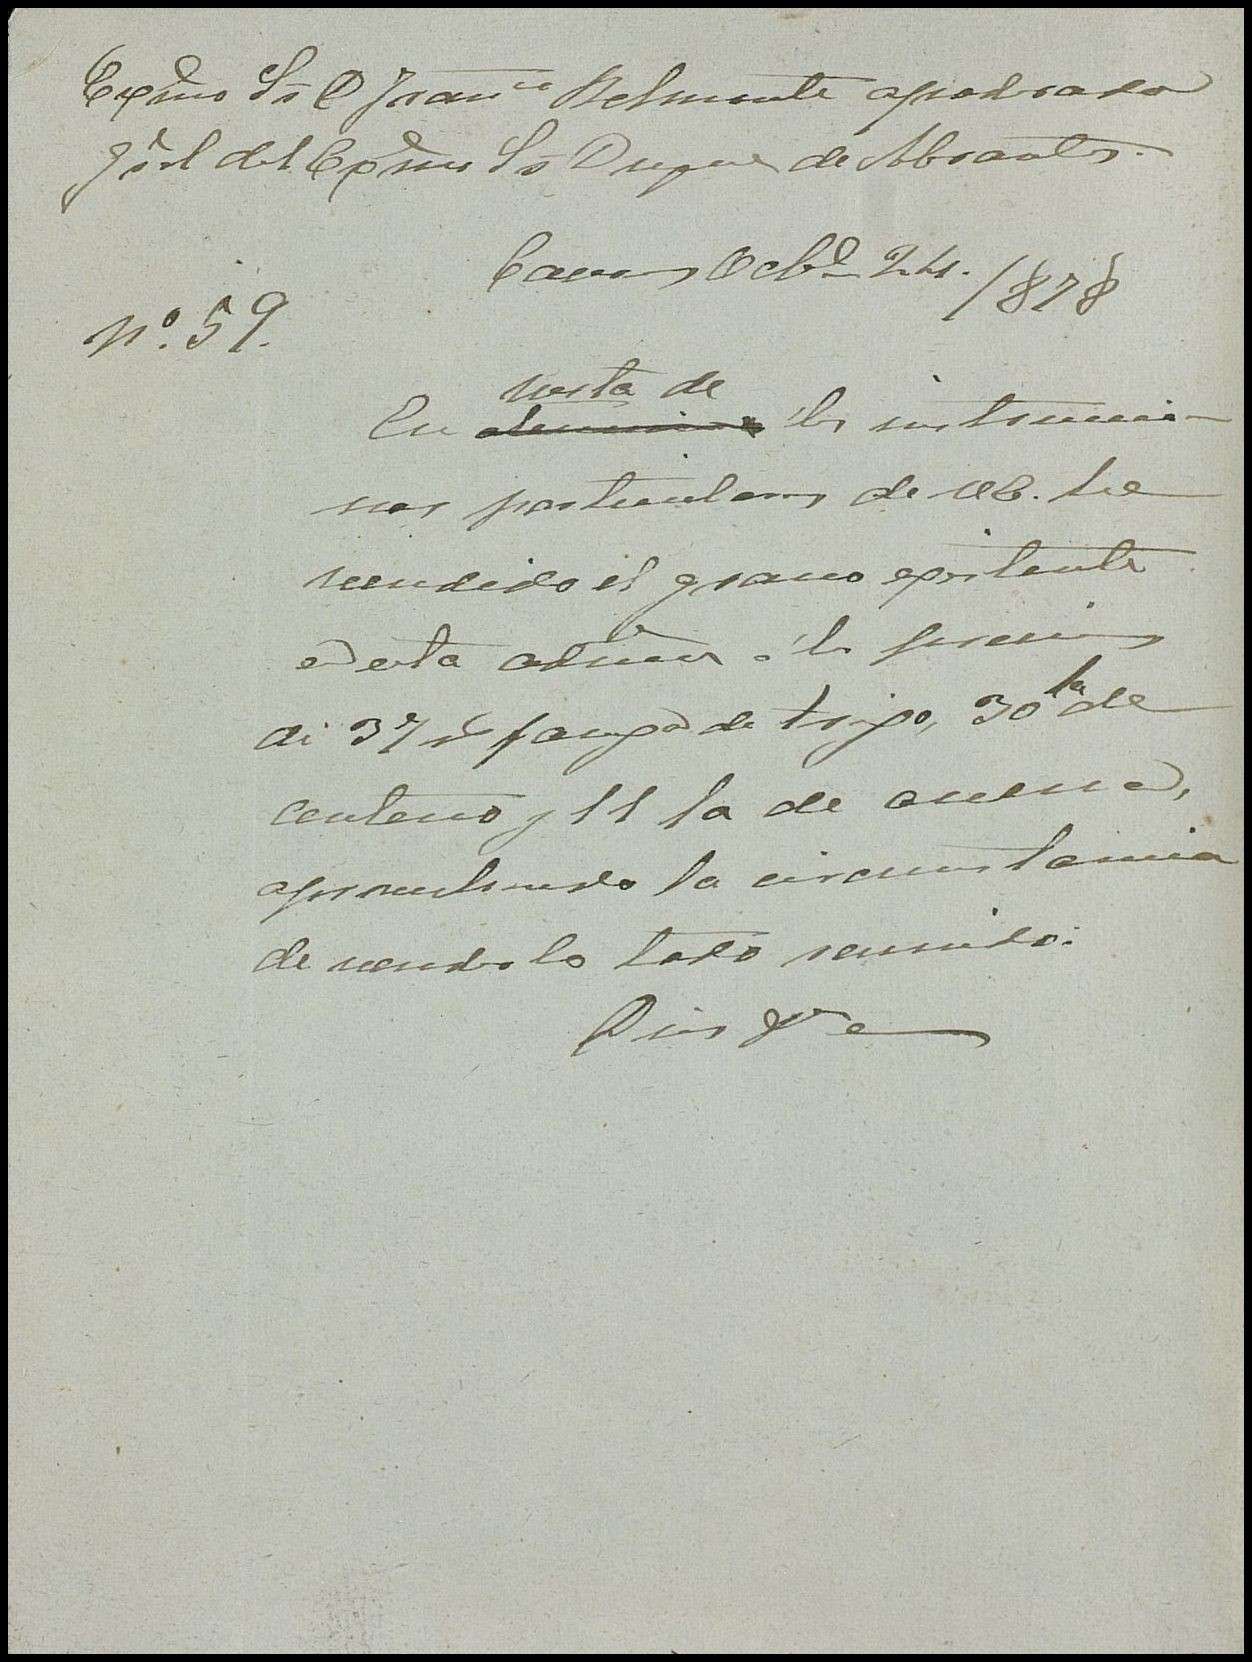 Exmo Sr D Franco Belmonte apoderado
gral del Exmo Sr Duque de Abrantes.
Octbe 24. /1878
Nº. 59.
vista de
En á las instruccio
nes particulares de VE. he
vendido el grano existente
en esta admon á los precios
de 37 rs fanega de trigo, 30 la de
centeno y 11 la de avena,
aprovechando la circunstancia
de venderlo todo reunido.
Dios gue